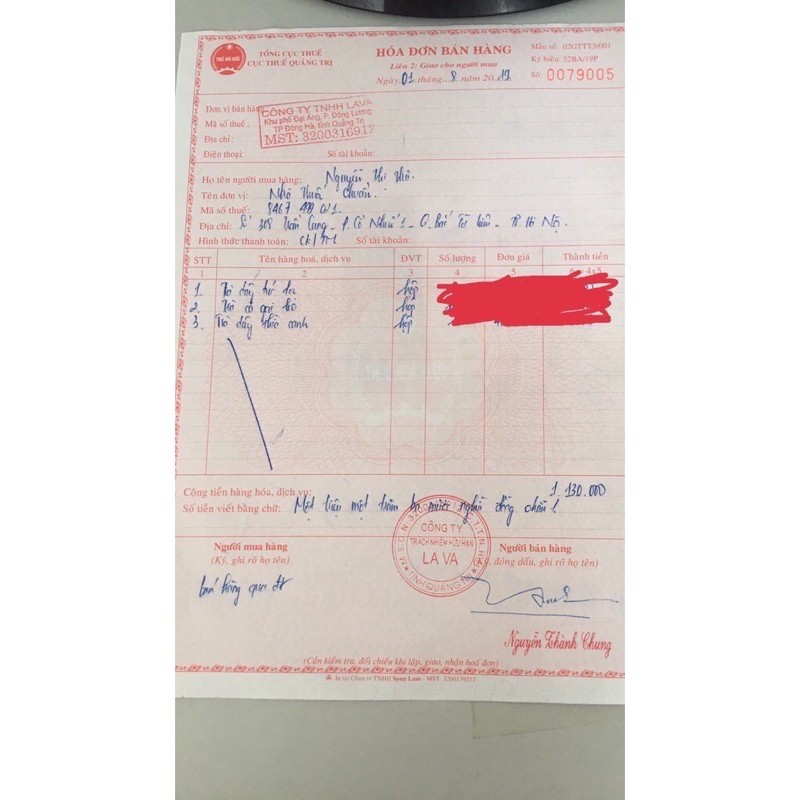 TỔNG CỤC THUẾ
CỤC THUẾ QUẢNG TRỊ
HÓA ĐƠN BÁN HÀNG
Liên 2: Giao cho người mua
Ngày 01 tháng 8 năm 2019
Mẫu số: 02GTTT3/001
Ký hiệu: 32BA/19P
Số: 0079005
Đơn vị bán hàng
Mã số thuế:
Địa chỉ:
Điện thoại: Số tài khoản:
CÔNG TY TNHH LAVA
Khu phố Đại Áng, P. Đông Lương
TP Đông Hà, tỉnh Quảng Trị
MST: 3200316912
Họ tên người mua hàng: Nguyễn Thị
Tên đơn vị: Nhà thuốc
Mã số thuế: 8467
Địa chỉ: Số 308 Trần Cung - P. Cổ Nhuế 1 - Q. Bắc Từ Liêm - TP Hà Nội.
Hình thức thanh toán: CK/TM Số tài khoản:
STT Tên hàng hoá, dịch vụ ĐVT Số lượng Đơn giá Thành tiền
1 2 3 4 5 6 = 4x5
1 Trà dây hộp
2 Trà hộp
3. Trà dây thìa canh hộp
Cộng tiền hàng hóa, dịch vụ: 1.130.000
Số tiền viết bằng chữ: Một triệu một trăm ba mươi nghìn đồng chẵn!
Người mua hàng
(Ký, ghi rõ họ tên)
bán hàng qua
CÔNG TY
TRÁCH NHIỆM HỮU HẠN
LA VA
Người bán hàng
(Ký, đóng dấu, ghi rõ họ tên)
Nguyễn Thành Chung
(Cần kiểm tra, đối chiếu khi lập, giao, nhận hoá đơn)